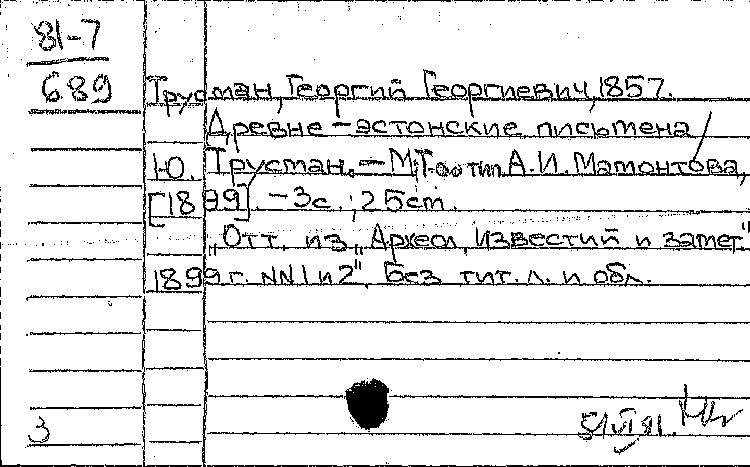 81-7
689
Трусман, Георгий Георгиевич, 1857.
Древне-эстонские письмена /
Ю. Трусман. - М.: Т-во тип. А.И. Мамонтова,
[1899]. - 3с.; 25см.
"Отт. из "Археол. известий и замет."
1899г. NN1и2". Без тит. л. и обл.
3